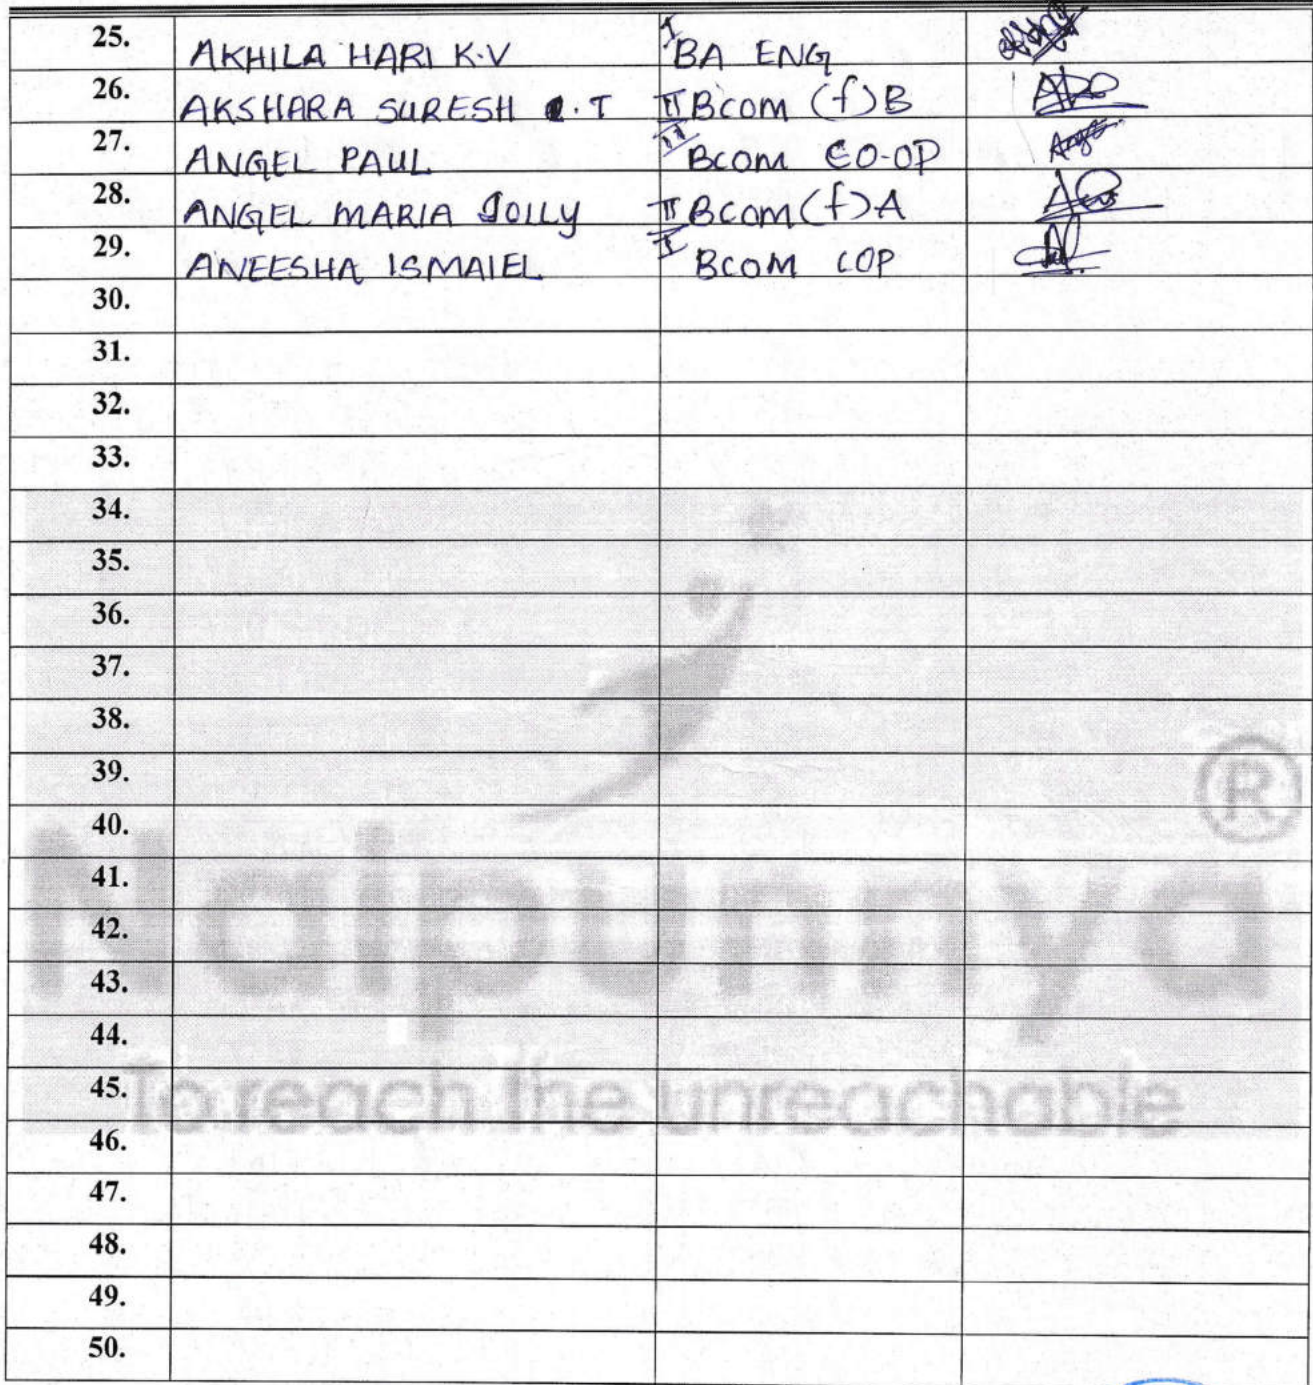 25. AKHILA HARI K.V I BA ENG
26. AKSHARA SURESH .T II Bcom (f) B
27. ANGEL PAUL II Bcom CO-OP
28. ANGEL MARIA JOLLY II Bcom (f) A
29. ANEESHA ISMAIEL I BCOM COP
30.
31.
32.
33.
34.
35.
36.
37.
38.
39.
40.
41.
42.
43.
44.
45.
46.
47.
48.
49.
50.
Naipunya ®
To reach the unreachable